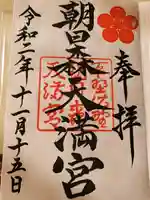 奉拝
朝日森天満宮
令和二年十一月十五日